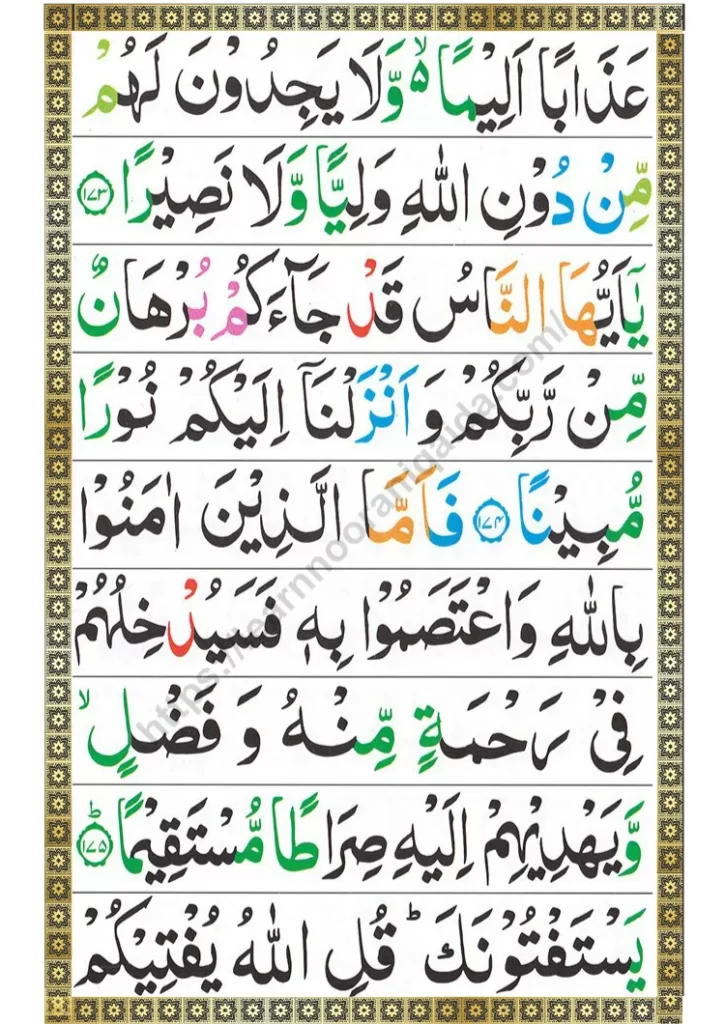 عَذَابًا اَلِيْمًا ۙ۵ وَّلَا يَجِدُوْنَ لَهُمْ
مِّنْ دُوْنِ اللّٰهِ وَلِيًّا وَّلَا نَصِيْرًا ۝۱۷۳
يٰۤاَيُّهَا النَّاسُ قَدْ جَآءَكُمْ بُرْهَانٌ
مِّنْ رَّبِّكُمْ وَ اَنْزَلْنَاۤ اِلَيْكُمْ نُوْرًا
مُّبِيْنًا ۝۱۷۴ فَاَمَّا الَّذِيْنَ اٰمَنُوْا
بِاللّٰهِ وَاعْتَصَمُوْا بِهٖ فَسَيُدْخِلُهُمْ
فِيْ رَحْمَةٍ مِّنْهُ وَ فَضْلٍ ۙ
وَّيَهْدِيْهِمْ اِلَيْهِ صِرَاطًا مُّسْتَقِيْمًا ؕ۝۱۷۵
يَسْتَفْتُوْنَكَ ؕ قُلِ اللّٰهُ يُفْتِيْكُمْ
https://learnnooraniqaida.com/